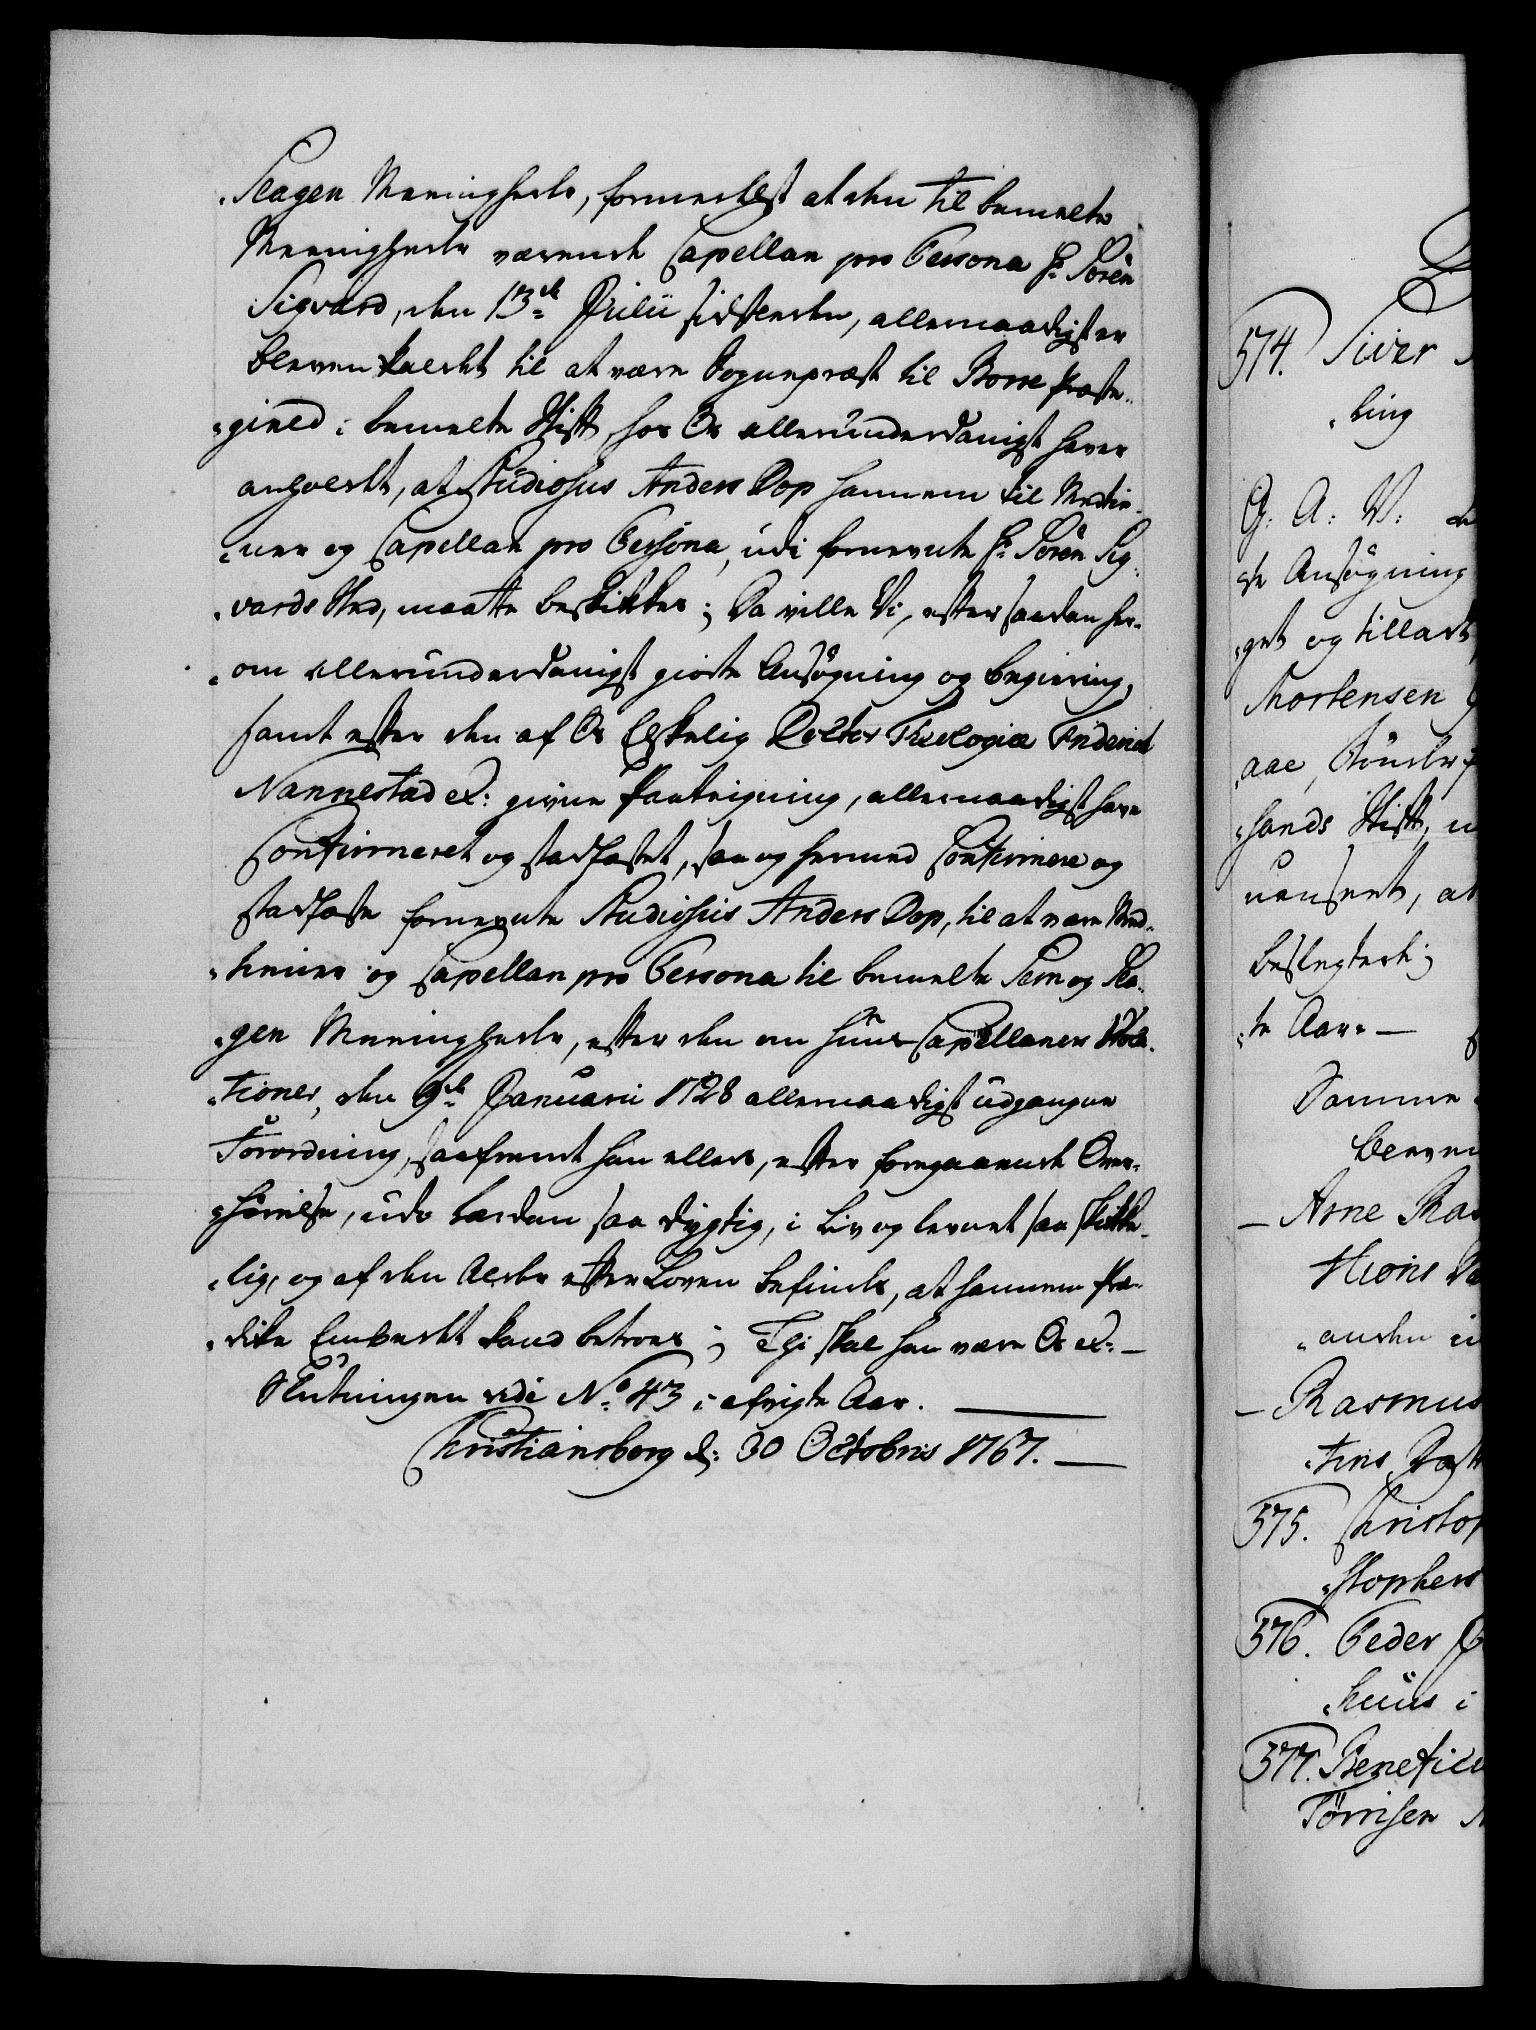 Slagen Meenigheder, formedelst at den til bemelte
Meenigheder værende Capellan pro Persona Hr. Søren
Sigvard, den 13de Julii sidstleden, allernaadigst er
bleven kaldet til at være Sognepræst til Borre Præste-
gield i bemelte Stift, hos Os allerunderdanigst haver
anholdt, at Studiosus Anders Dop hannem til Medtie-
ner og Capellan pro Persona, udi fornevnte Hr. Søren Sig-
vards Sted, maatte beskikkes; Da ville Vi, efter saadan her-
om allerunderdanigst giorte Ansøgning og begiering,
samt efter den af Os Elskelig Doctor Theologiæ Friderich
Nannestad etc: givne Paategning, allernaadigst have
Confirmeret og stadfæstet, saa og hermed Confirmere og
stadfæste fornevnte Studiosus Anders Dop, til at være Med-
tiener og Capellan pro Persona til bemelte Sem og Sla-
gen Meenigheder, efter den om Huus Capellaners Voca-
tioner, den 9de Januarii 1728 allernaadigst udgangne
Forordning, saafremt han ellers, efter foregaaende Over-
hørelse, udi Lærdom saa dygtig, i Liv og levnet saa skikke-
lig, og af den Alder efter Loven befindes, at hannem Præ-
dike Embedet kand betroes; Thi skal han være Os etc: —
Slutningen vide No. 43 i afvigte Aar. —
Christiansborg d: 30 Octobris 1767. —
574. Siver
ling
G: A: V:
te Ansøgning
get og tilladt,
Mortensen
aae, Bønder
hands Stift,
uanseet, at
beslegtede;
te Aar. —
Samme
— Arne
anden
— Rasmus
575. Christop
stophers
576. Peder
huus i
577. Benefici
Tørrisen